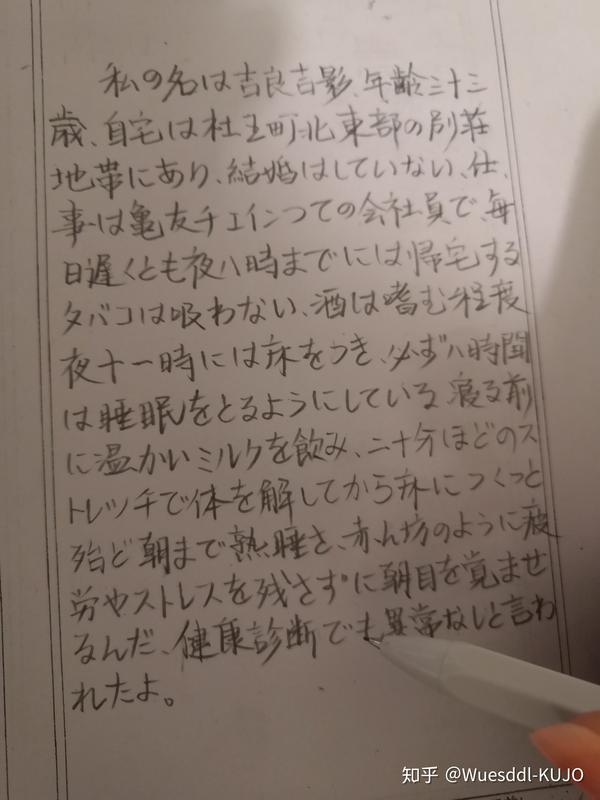 私の名は吉良吉影、年齢三十三
歳、自宅は杜王町北東部の別荘
地帯にあり、結婚はしていない、仕、
事は亀友チェインつての会社員で毎
日遅くとも夜八時までには帰宅する
タバコは吸わない、酒は嗜む程度
夜十一時には床をつき、必ず八時間
は睡眠をとるようにしている 寝る前
に温かいミルクを飲み、二十分ほどのス
トレッチで体を解してから床につくっと
殆ど朝まで熟睡さ、赤ん坊のように疲
労やストレスを残さずに朝目を覚ませ
るんだ、健康診断でも異常なしと言わ
れたよ。
知乎 @Wuesddl-KUJO